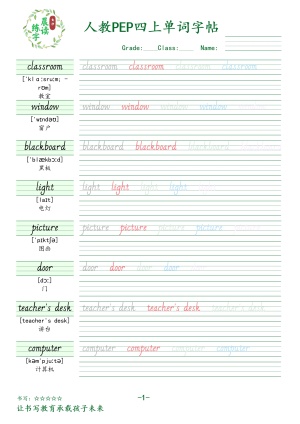 晨读
练字
人教PEP四上单词字帖
Grade:____Class:____ Name:
classroom classroom classroom classroom classroom classroom
['klɑːsruːm; -
rʊm]
教室
window window window window window window
['wɪndəʊ]
窗户
blackboard blackboard blackboard blackboard
['blækbɔːd]
黑板
light light light light light
[laɪt]
电灯
picture picture picture picture picture picture
['pɪktʃə]
图画
door door door door door
[dɔː]
门
teacher's desk teacher's desk teacher's desk teacher's desk
[teacher's desk]
讲台
computer computer computer computer computer
[kəm'pjuːtə]
计算机
书写：☆☆☆☆☆
-1-
让书写教育承载孩子未来